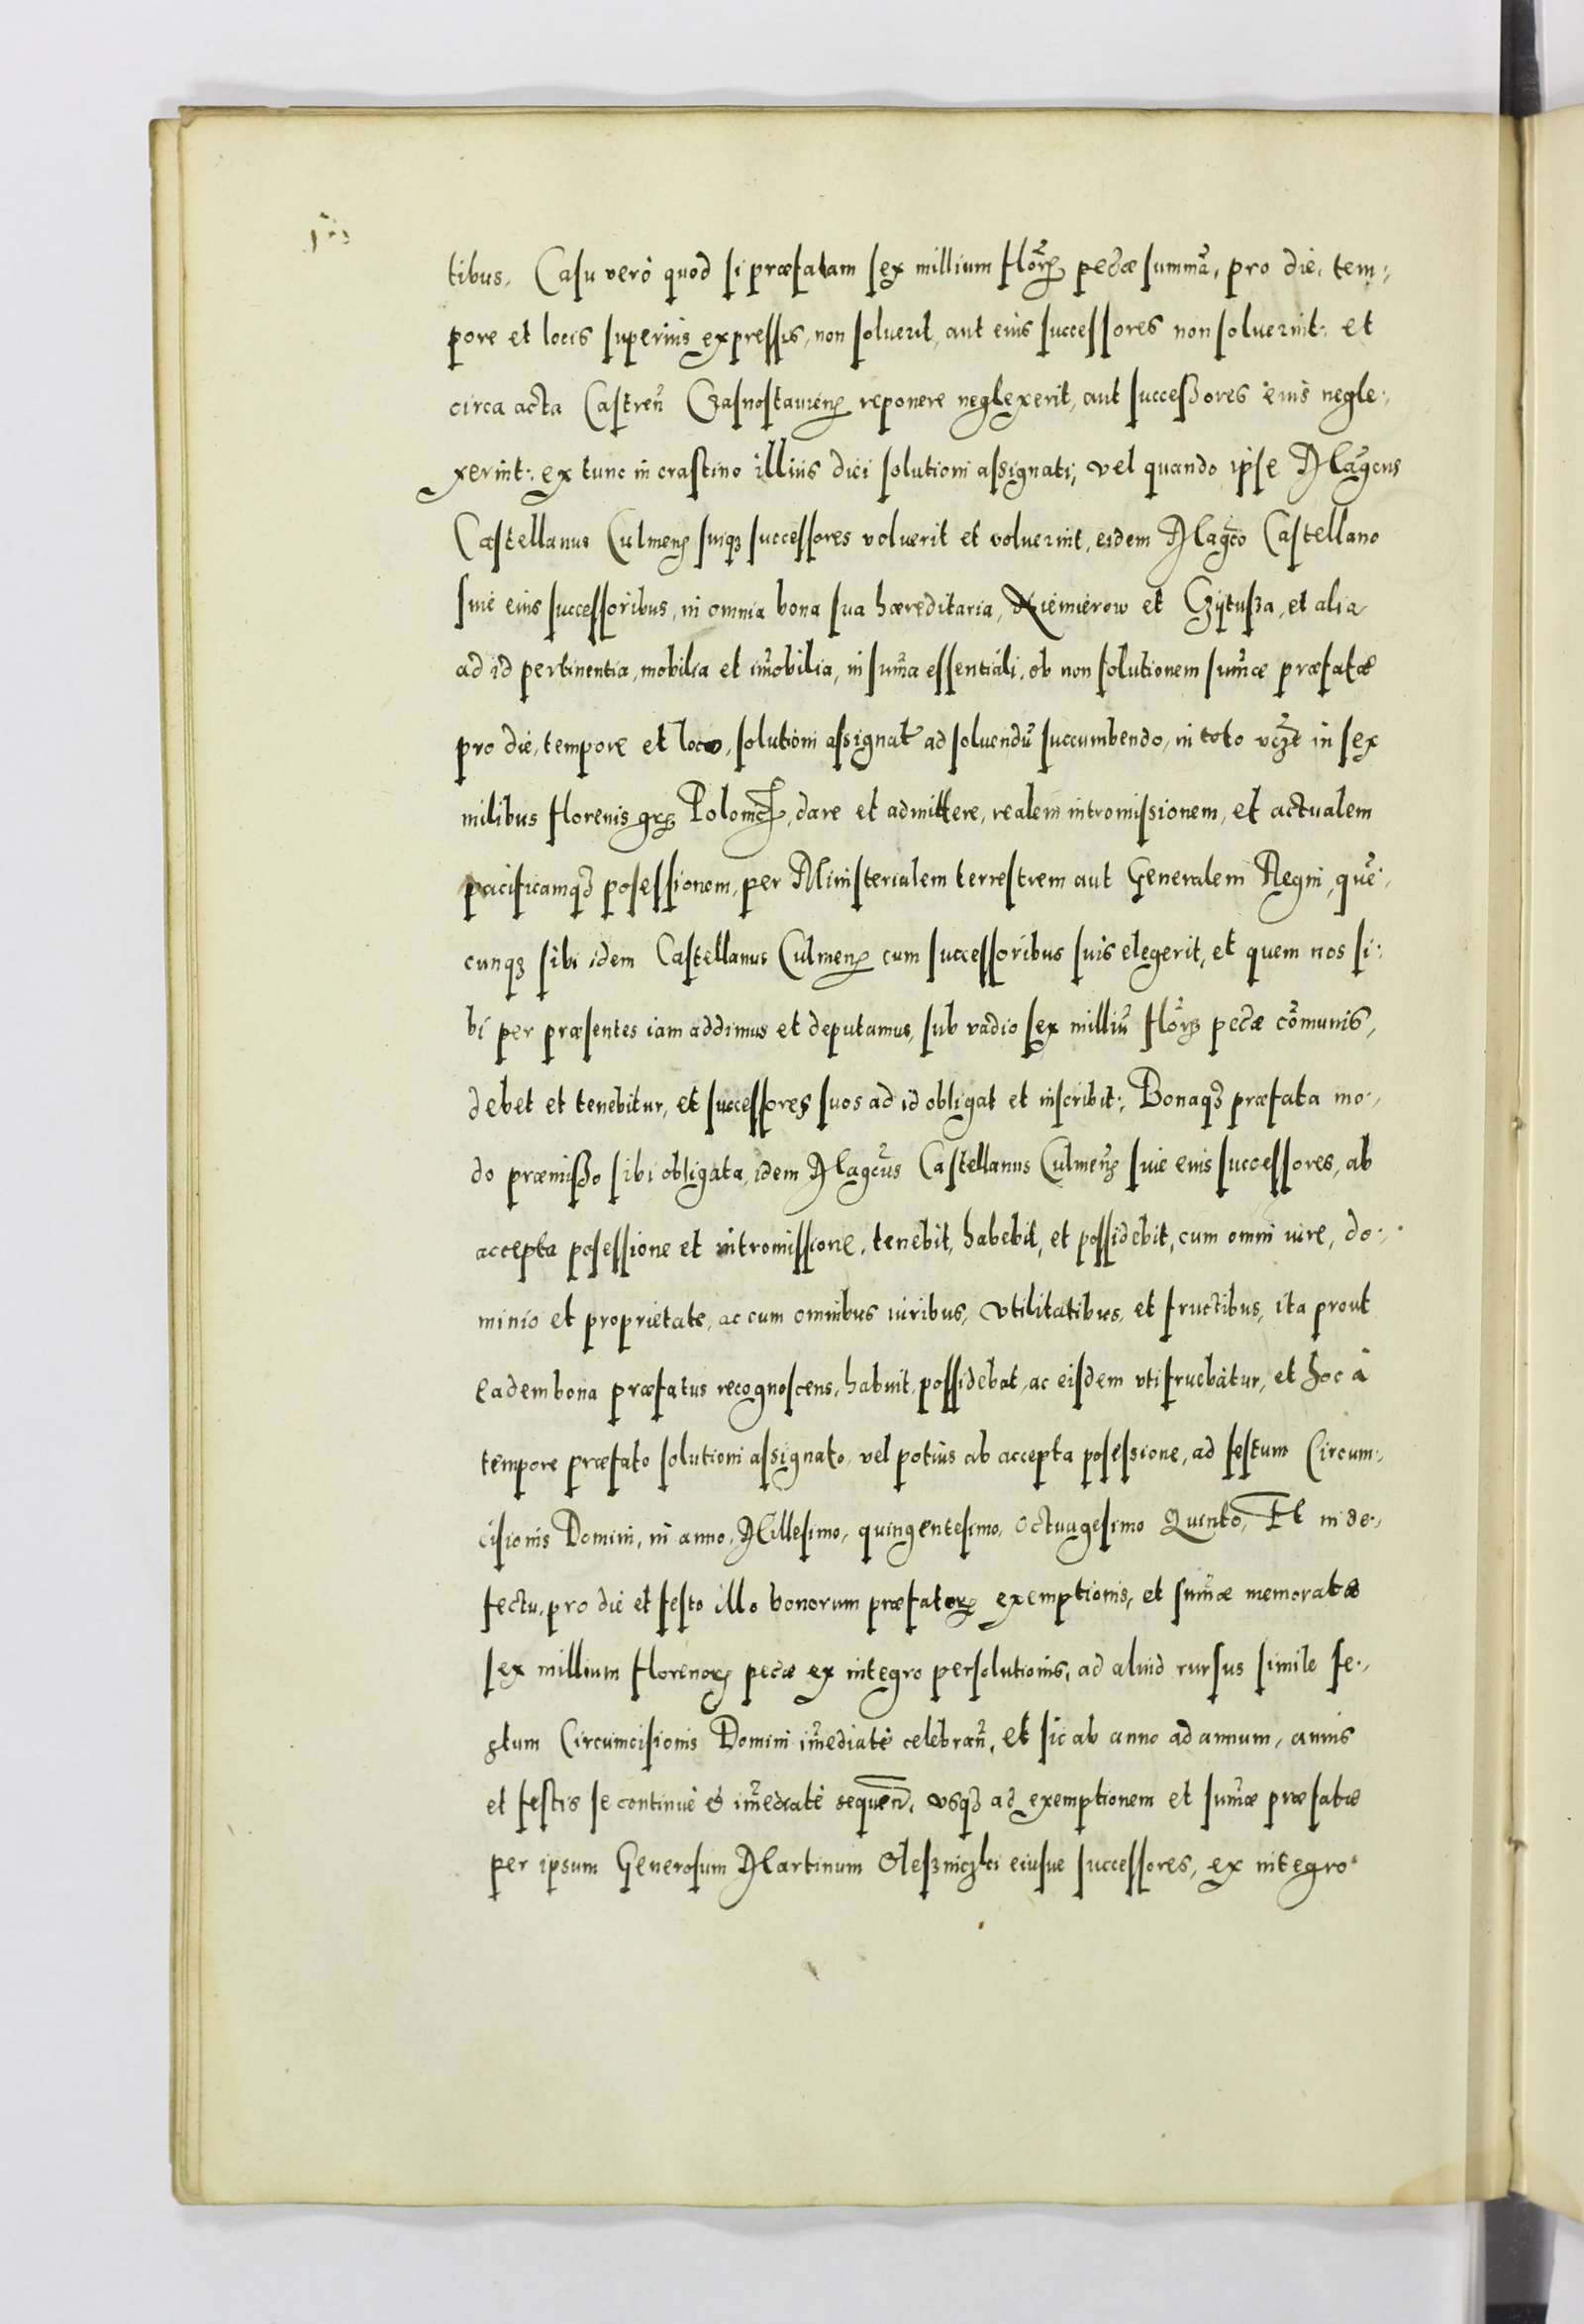 tibus. Casu verò quod si præfatam sex millium florꝝ pecĩæ summã, pro die, tem:,
pore et locis superius expressis, non soluerit, aut eius successores non soluerint: et
circa acta Castreñ Crasnostauieñ reponere neglexerit, aut successores eius negle:,
xerint: ex tunc in crastino illius diei solutioni assignati, vel quando ipse Magcus
Castellanus Culmeñ suiqꝫ successores voluerit et voluerint, eidem Magco Castellano
siue eius successoribus, in omnia bona sua hæreditaria, Niemierow et, et alia
ad id pertinentia, mobilia et im̃obilia, in sum̃a essentiali, ob non solutionem sum̃æ præfatæ
pro die, tempore et loco, solutioni assignat ad soluendũ succumbendo, in toto vcꝫt in sex
milibus florenis Polonic, dare et admittere, realem intromissionem, et actualem
pacificamqꝫ posessionem, per Ministerialem terrestrem aut Generalem Regni, quẽ:,
cunqꝫ sibi idem Castellanus Culmeñ cum successoribus suis elegerit, et quem nos si:
bi per præsentes iam addimus et deputamus, sub vadio sex milliũ florꝝ pecĩæ cõmunis,
debet et tenebitur, et successores suos ad id obligat et inscribit:, Bonaqꝫ præfata mo:,
do præmisso sibi obligata, idem Magcus Castellanus Culmeñ siue eius successores, ab
accepta posessione et intromissione, tenebit, habebit, et possidebit, cum omni iure, do:,
minio et proprietate, ac cum omnibus iuribus, vtilitatibus, et fructibus, ita prout
eadem bona præfatus recognoscens, habuit, possidebat, ac eisdem vtifruebatur, et hoc â
tempore præfato solutioni assignato, vel potius ab accepta posessione, ad festum Circum:,
cisionis Domini, in anno, Millesimo, quingentesimo, octuagesimo Quinto, Et in de:,
fectu, pro die et festo illo bonorum præfatorꝝ exemptionis, et sum̃æ memoratæ
sex millium florenorꝝ pecĩæ ex integro persolutionis, ad aliud rursus simile fe:,
stum Circumcisionis Domini im̃ediatè celebrañ, et sic ab anno ad annum, annis
et festis se continuè & im̃ediatè sequeñ, vsqꝫ ad exemptionem et sum̃æ præfatæ
per ipsum Generosum Martinum Oleszniczki eiusue successores, ex integro